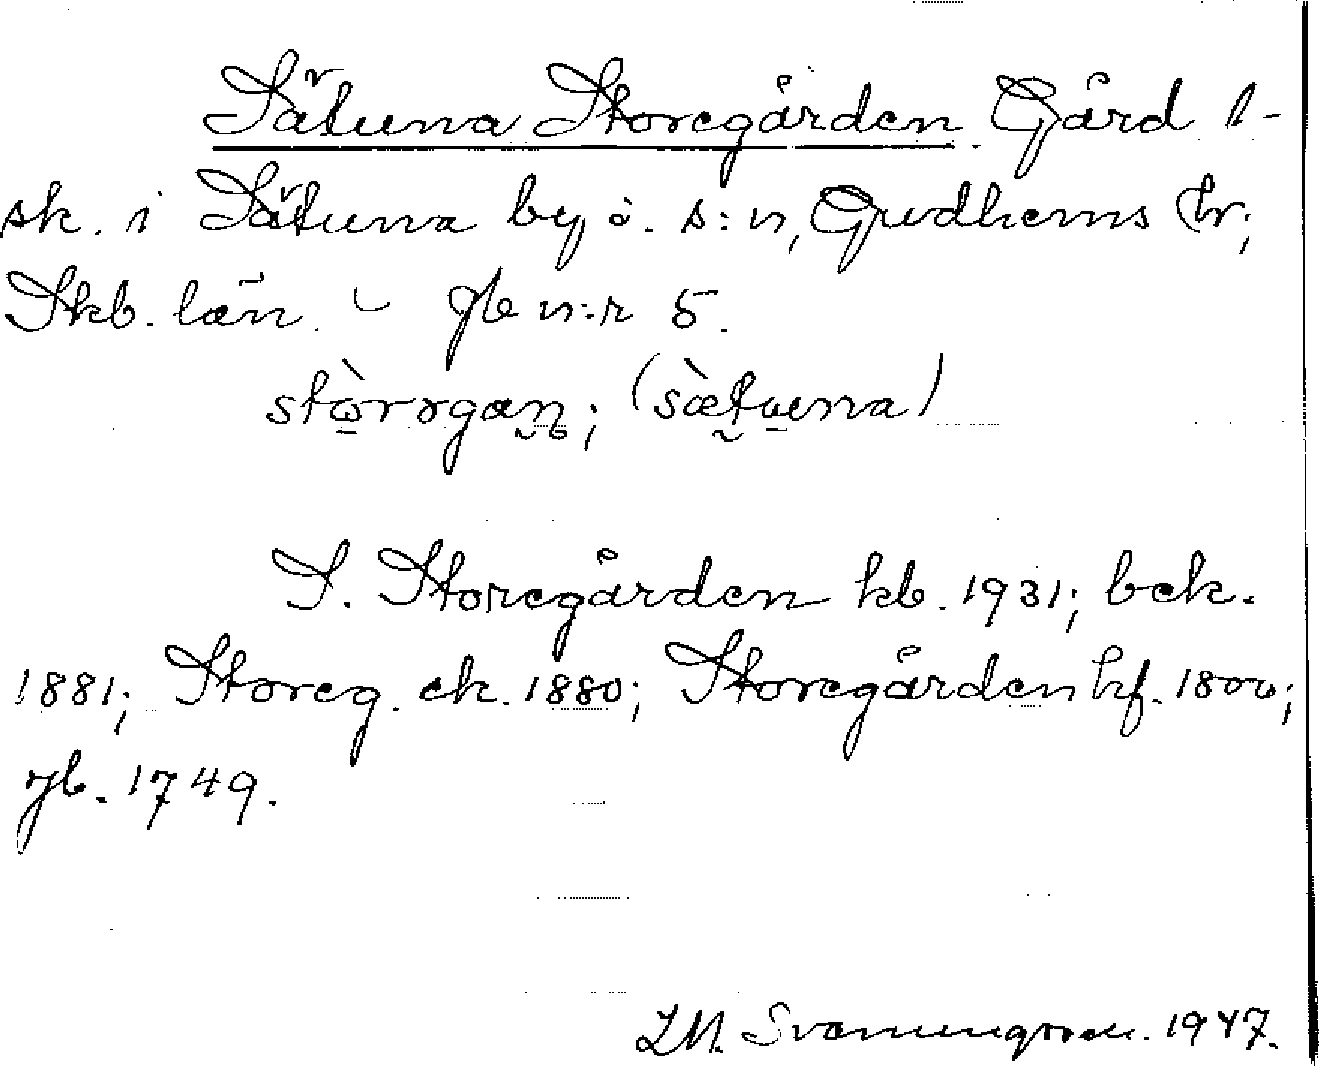 Sätuna Storegården Gård l-
sk. i Sätuna by o. s:n, Gudhems hr;
Skb. län. – jb n:r 5.
stòrrgan; (sæ̀tuna)
S. Storegården kb. 1931; bek.
1881; Storeg. ek. 1880; Storegården hf. 1800;
jb. 1749.
Svenungsson. 1947.